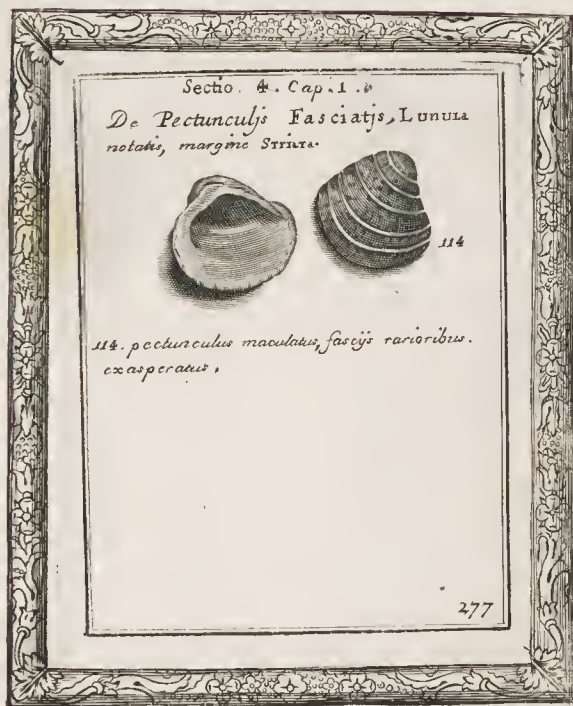 Sectio. 4. Cap. 1.
De Pectunculjs Fasciatjs, Lunula
notatis, margine Striata.
114
114. pectunculus maculatus, fascijs rarioribus.
exasperatus.
277